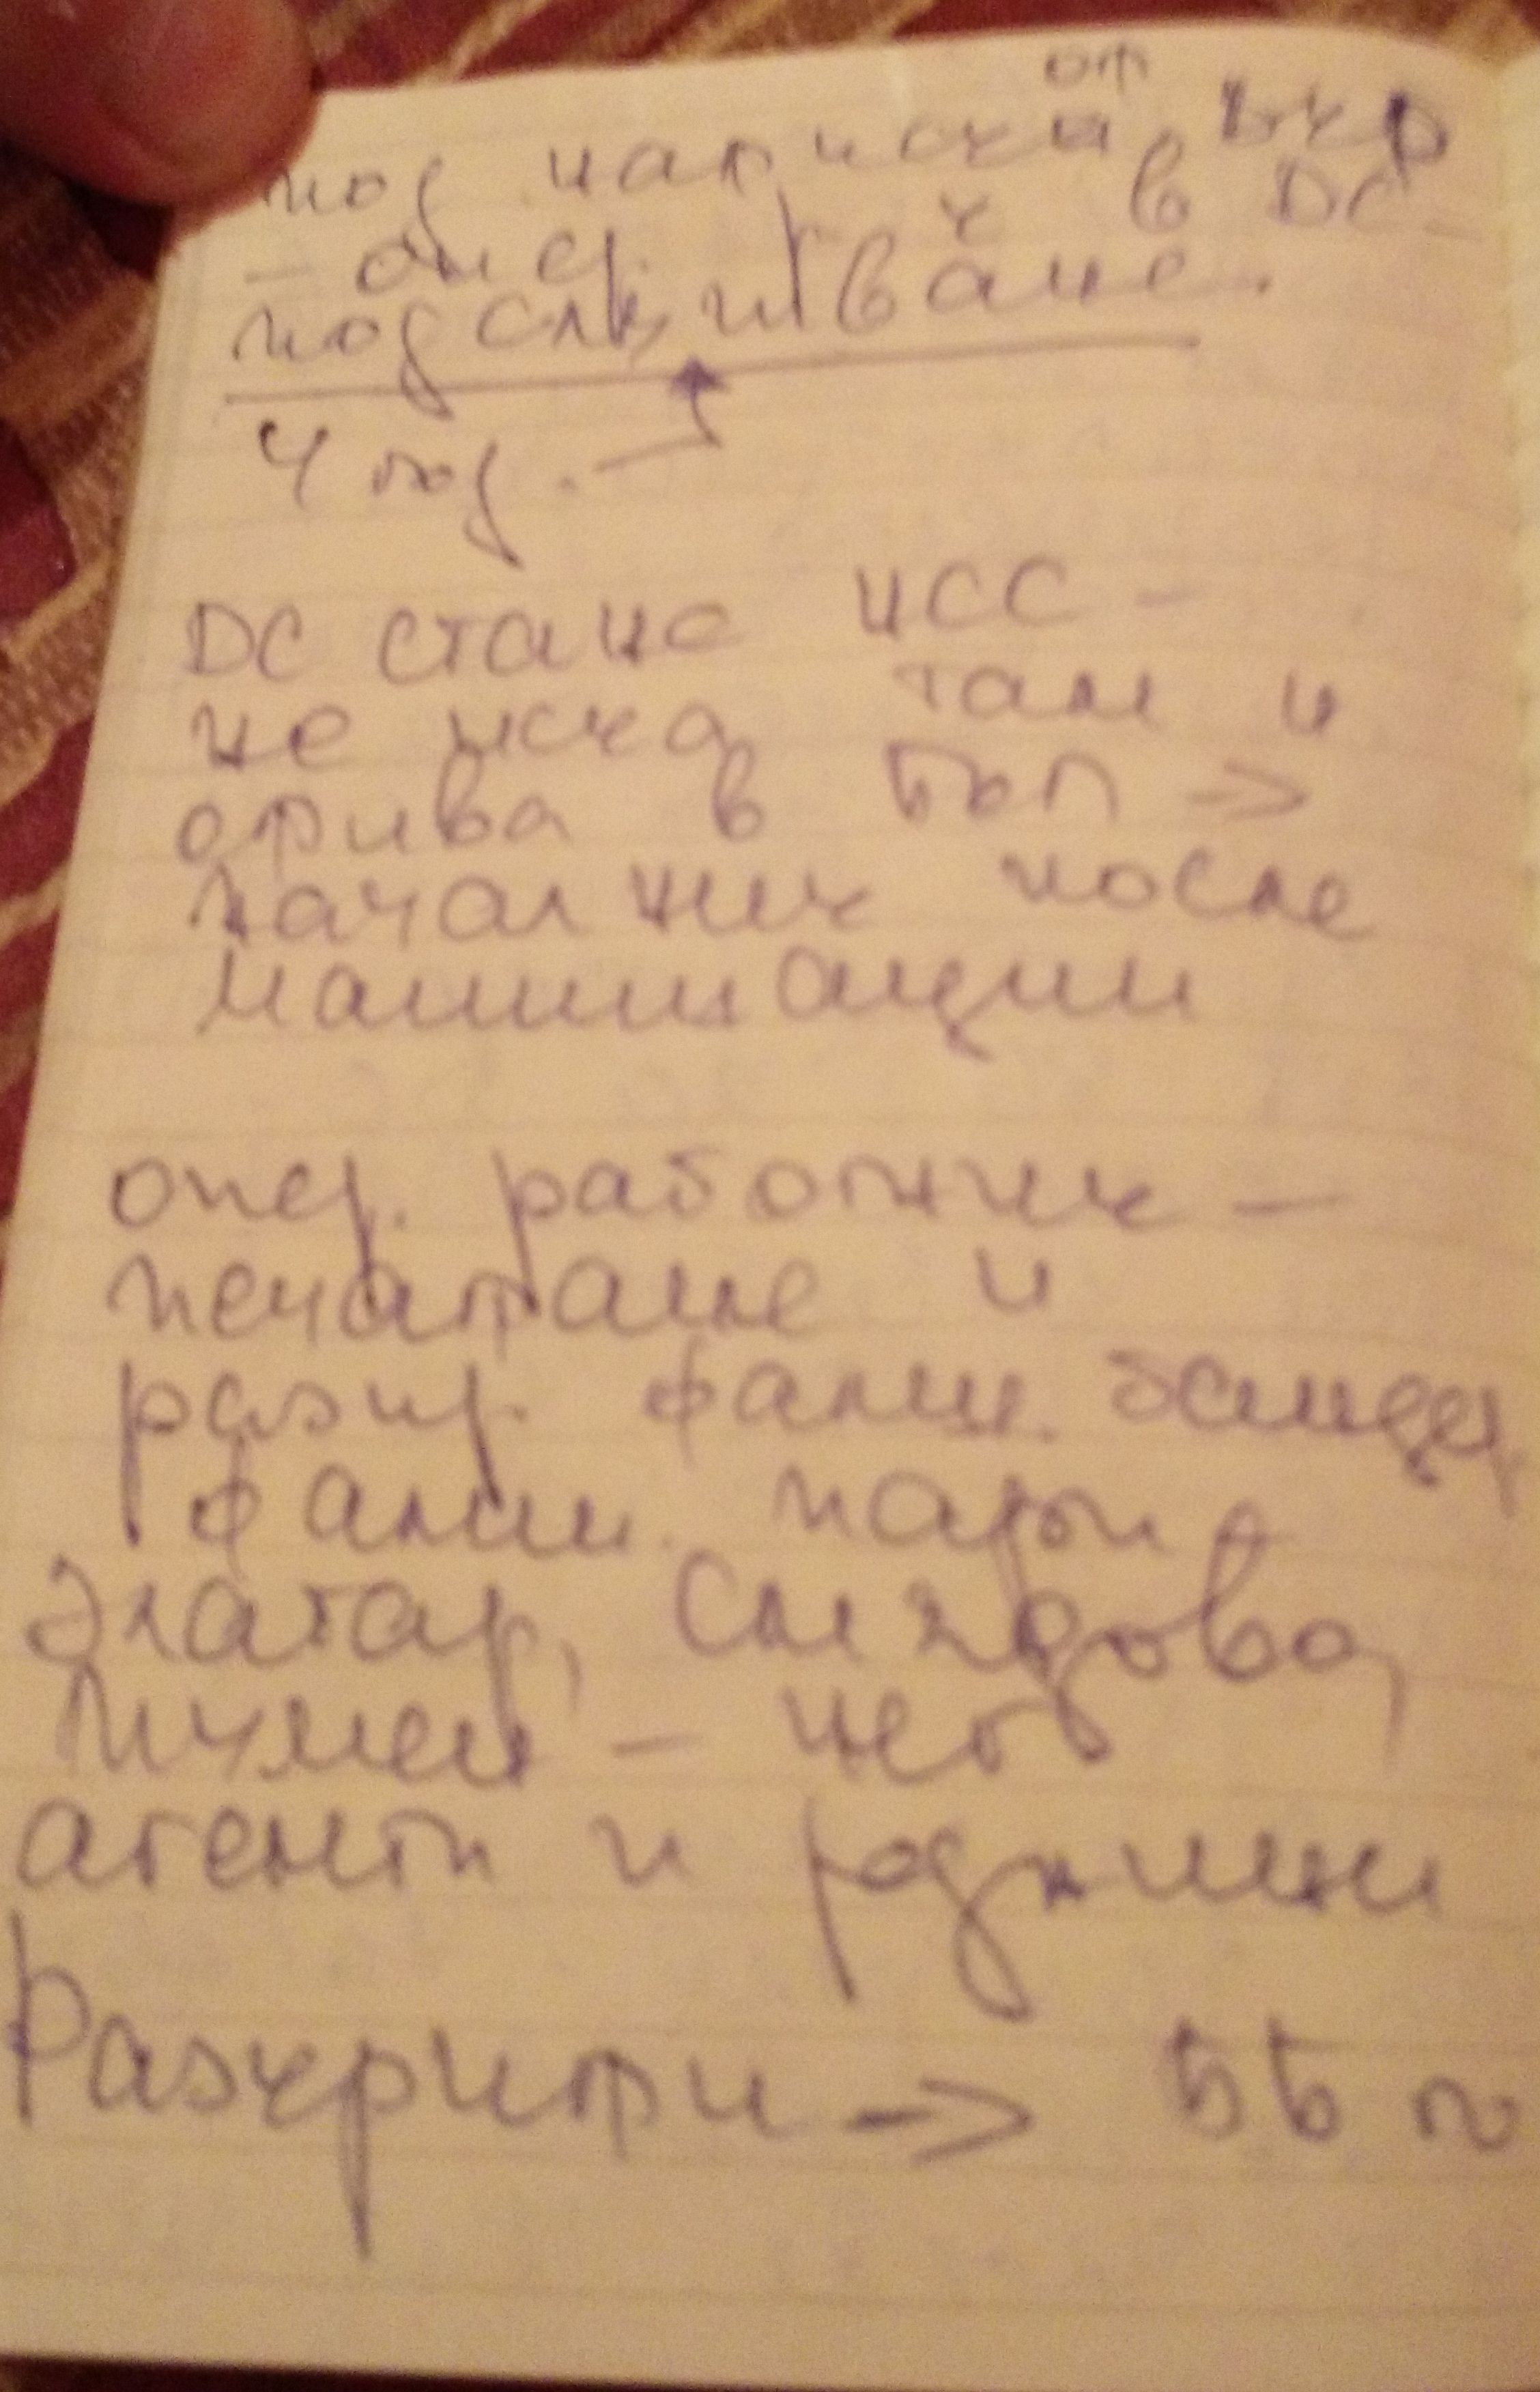 от
под написки вкр
- опер. - к в ДС -
подслушване.
4 год.
ДС стана НСС -
не иска там и
отива в БЪП ->
началник после
машинации
опер. работник -
печатане и
разпр. фалш.
фалш. пари
Златар, Следова
Плумен - нег
агенти и роднини
Разкрити ->